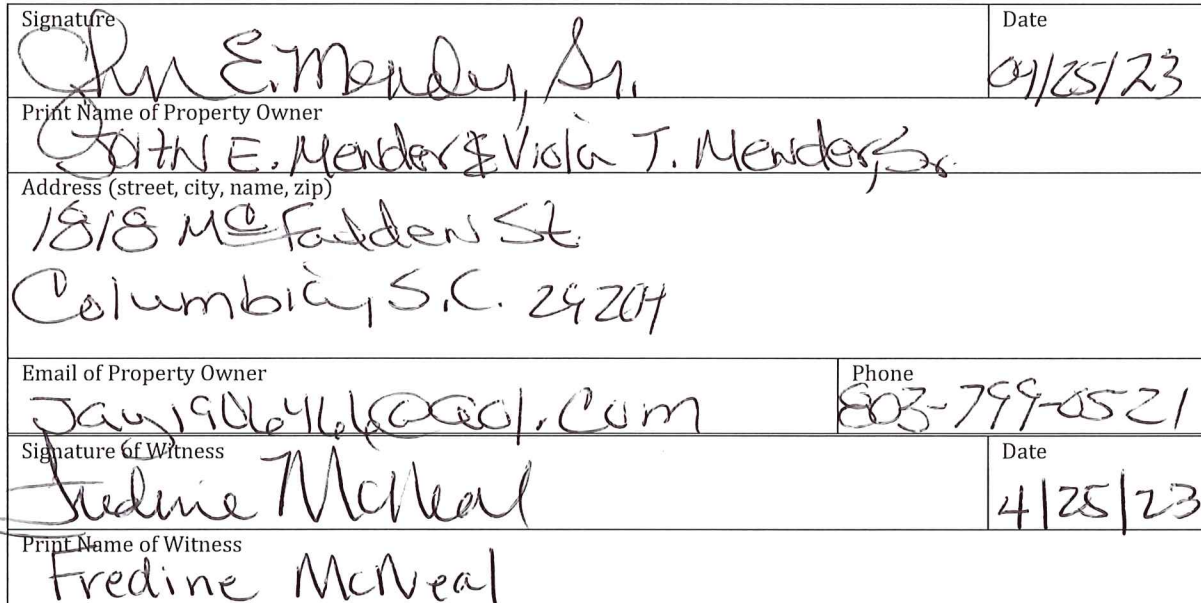 Signature
John E. Mender, Sr.
Date
04/25/23
Print Name of Property Owner
JOHN E. Mender & Viola T. Mender, Sr.
Address (street, city, name, zip)
1818 McFadden St.
Columbia, S.C. 29204
Email of Property Owner
Phone
803-799-0521
Signature of Witness
Fredine McNeal
Date
4/25/23
Print Name of Witness
Fredine McNeal